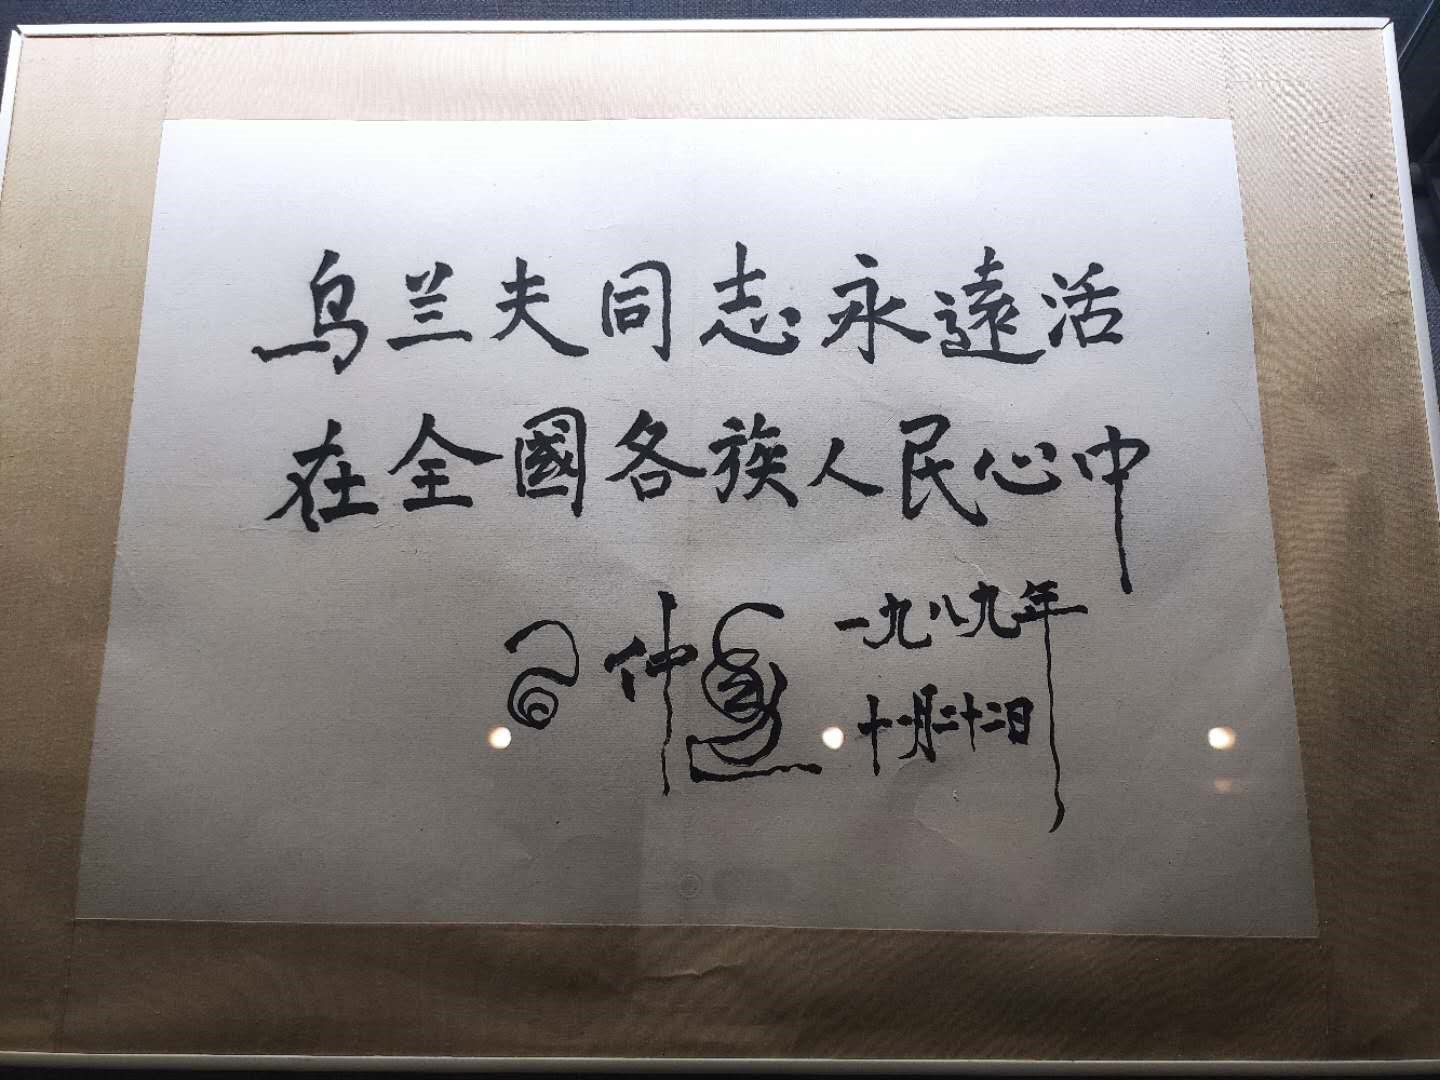 乌兰夫同志永遠活
在全國各族人民心中
仲
一九八九年
十一月二十二日